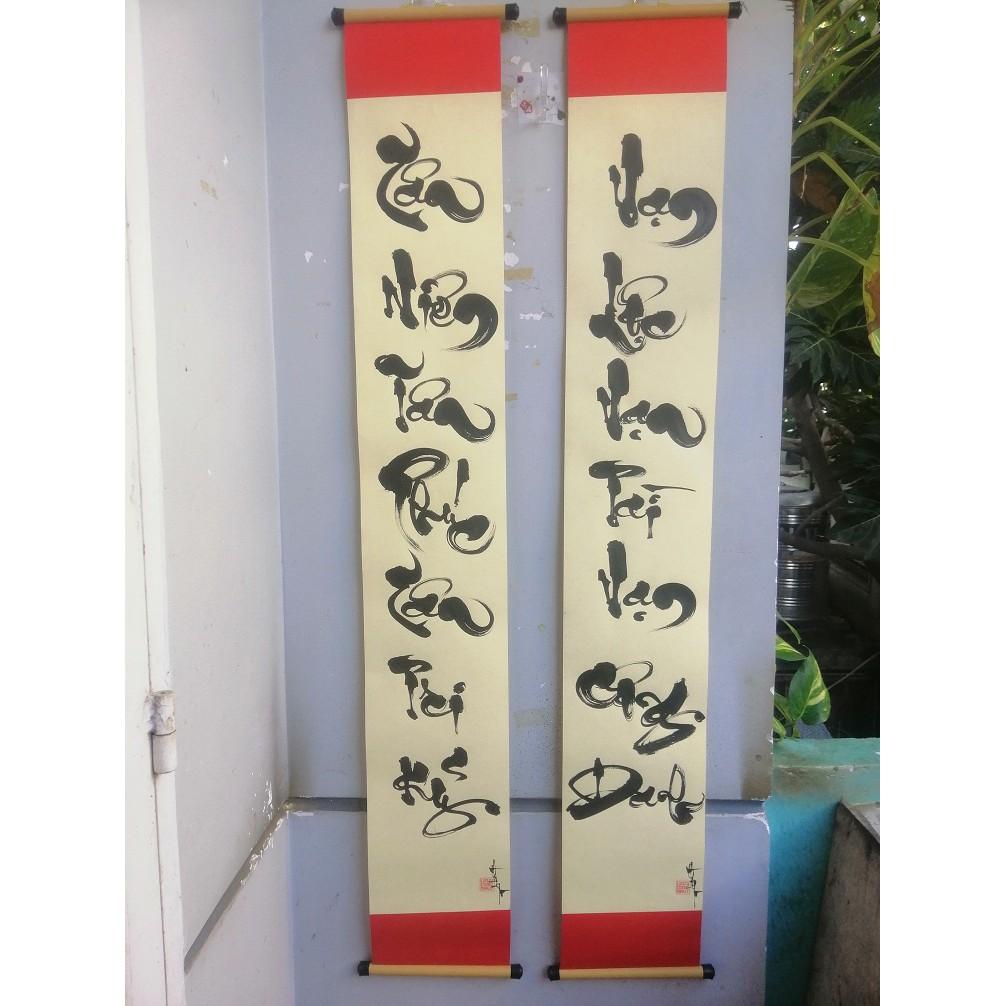 Tân
Niên
Tân
Phúc
Tân
Tri
Kỷ
Vạn
Lộc
Vạn
Tài
Vạn
Công
Danh